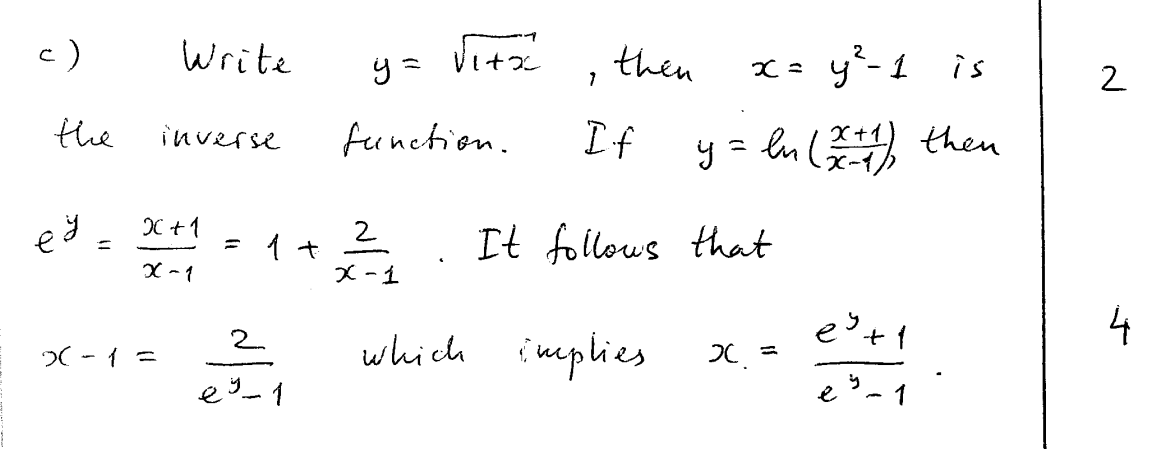 c) Write y = √1+x , then x = y²-1 is 2
the inverse function. If y = ln(x+1/x-1), then
e^y = x+1/x-1 = 1 + 2/x-1 . It follows that
x-1 = 2/e^y-1 which implies x = e^y+1/e^y-1 . 4